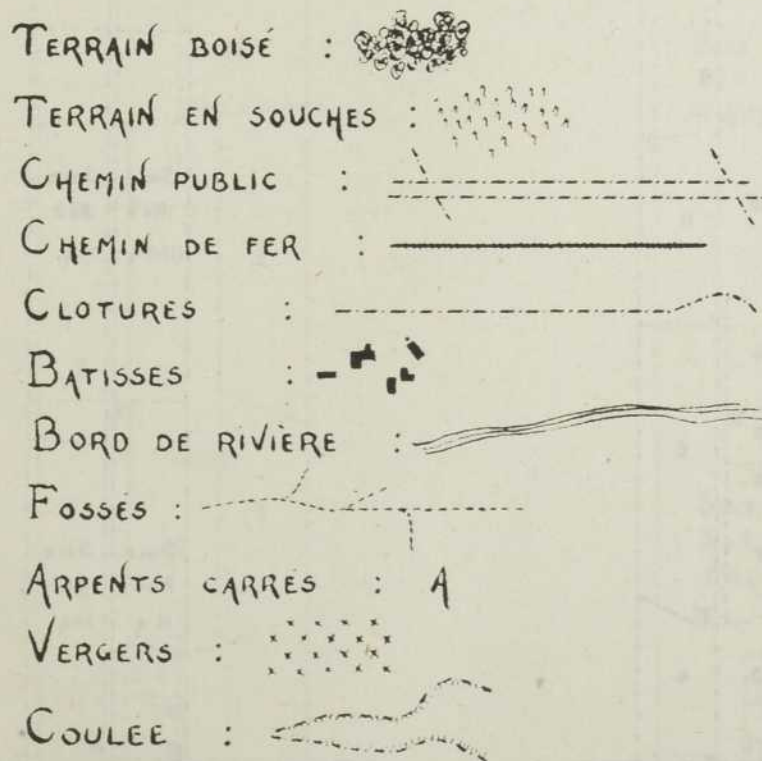 TERRAIN BOISÉ :
TERRAIN EN SOUCHES :
CHEMIN PUBLIC :
CHEMIN DE FER :
CLOTURES :
BATISSES :
BORD DE RIVIÈRE :
FOSSÉS :
ARPENTS CARRÉS : A
VERGERS :
COULÉE :